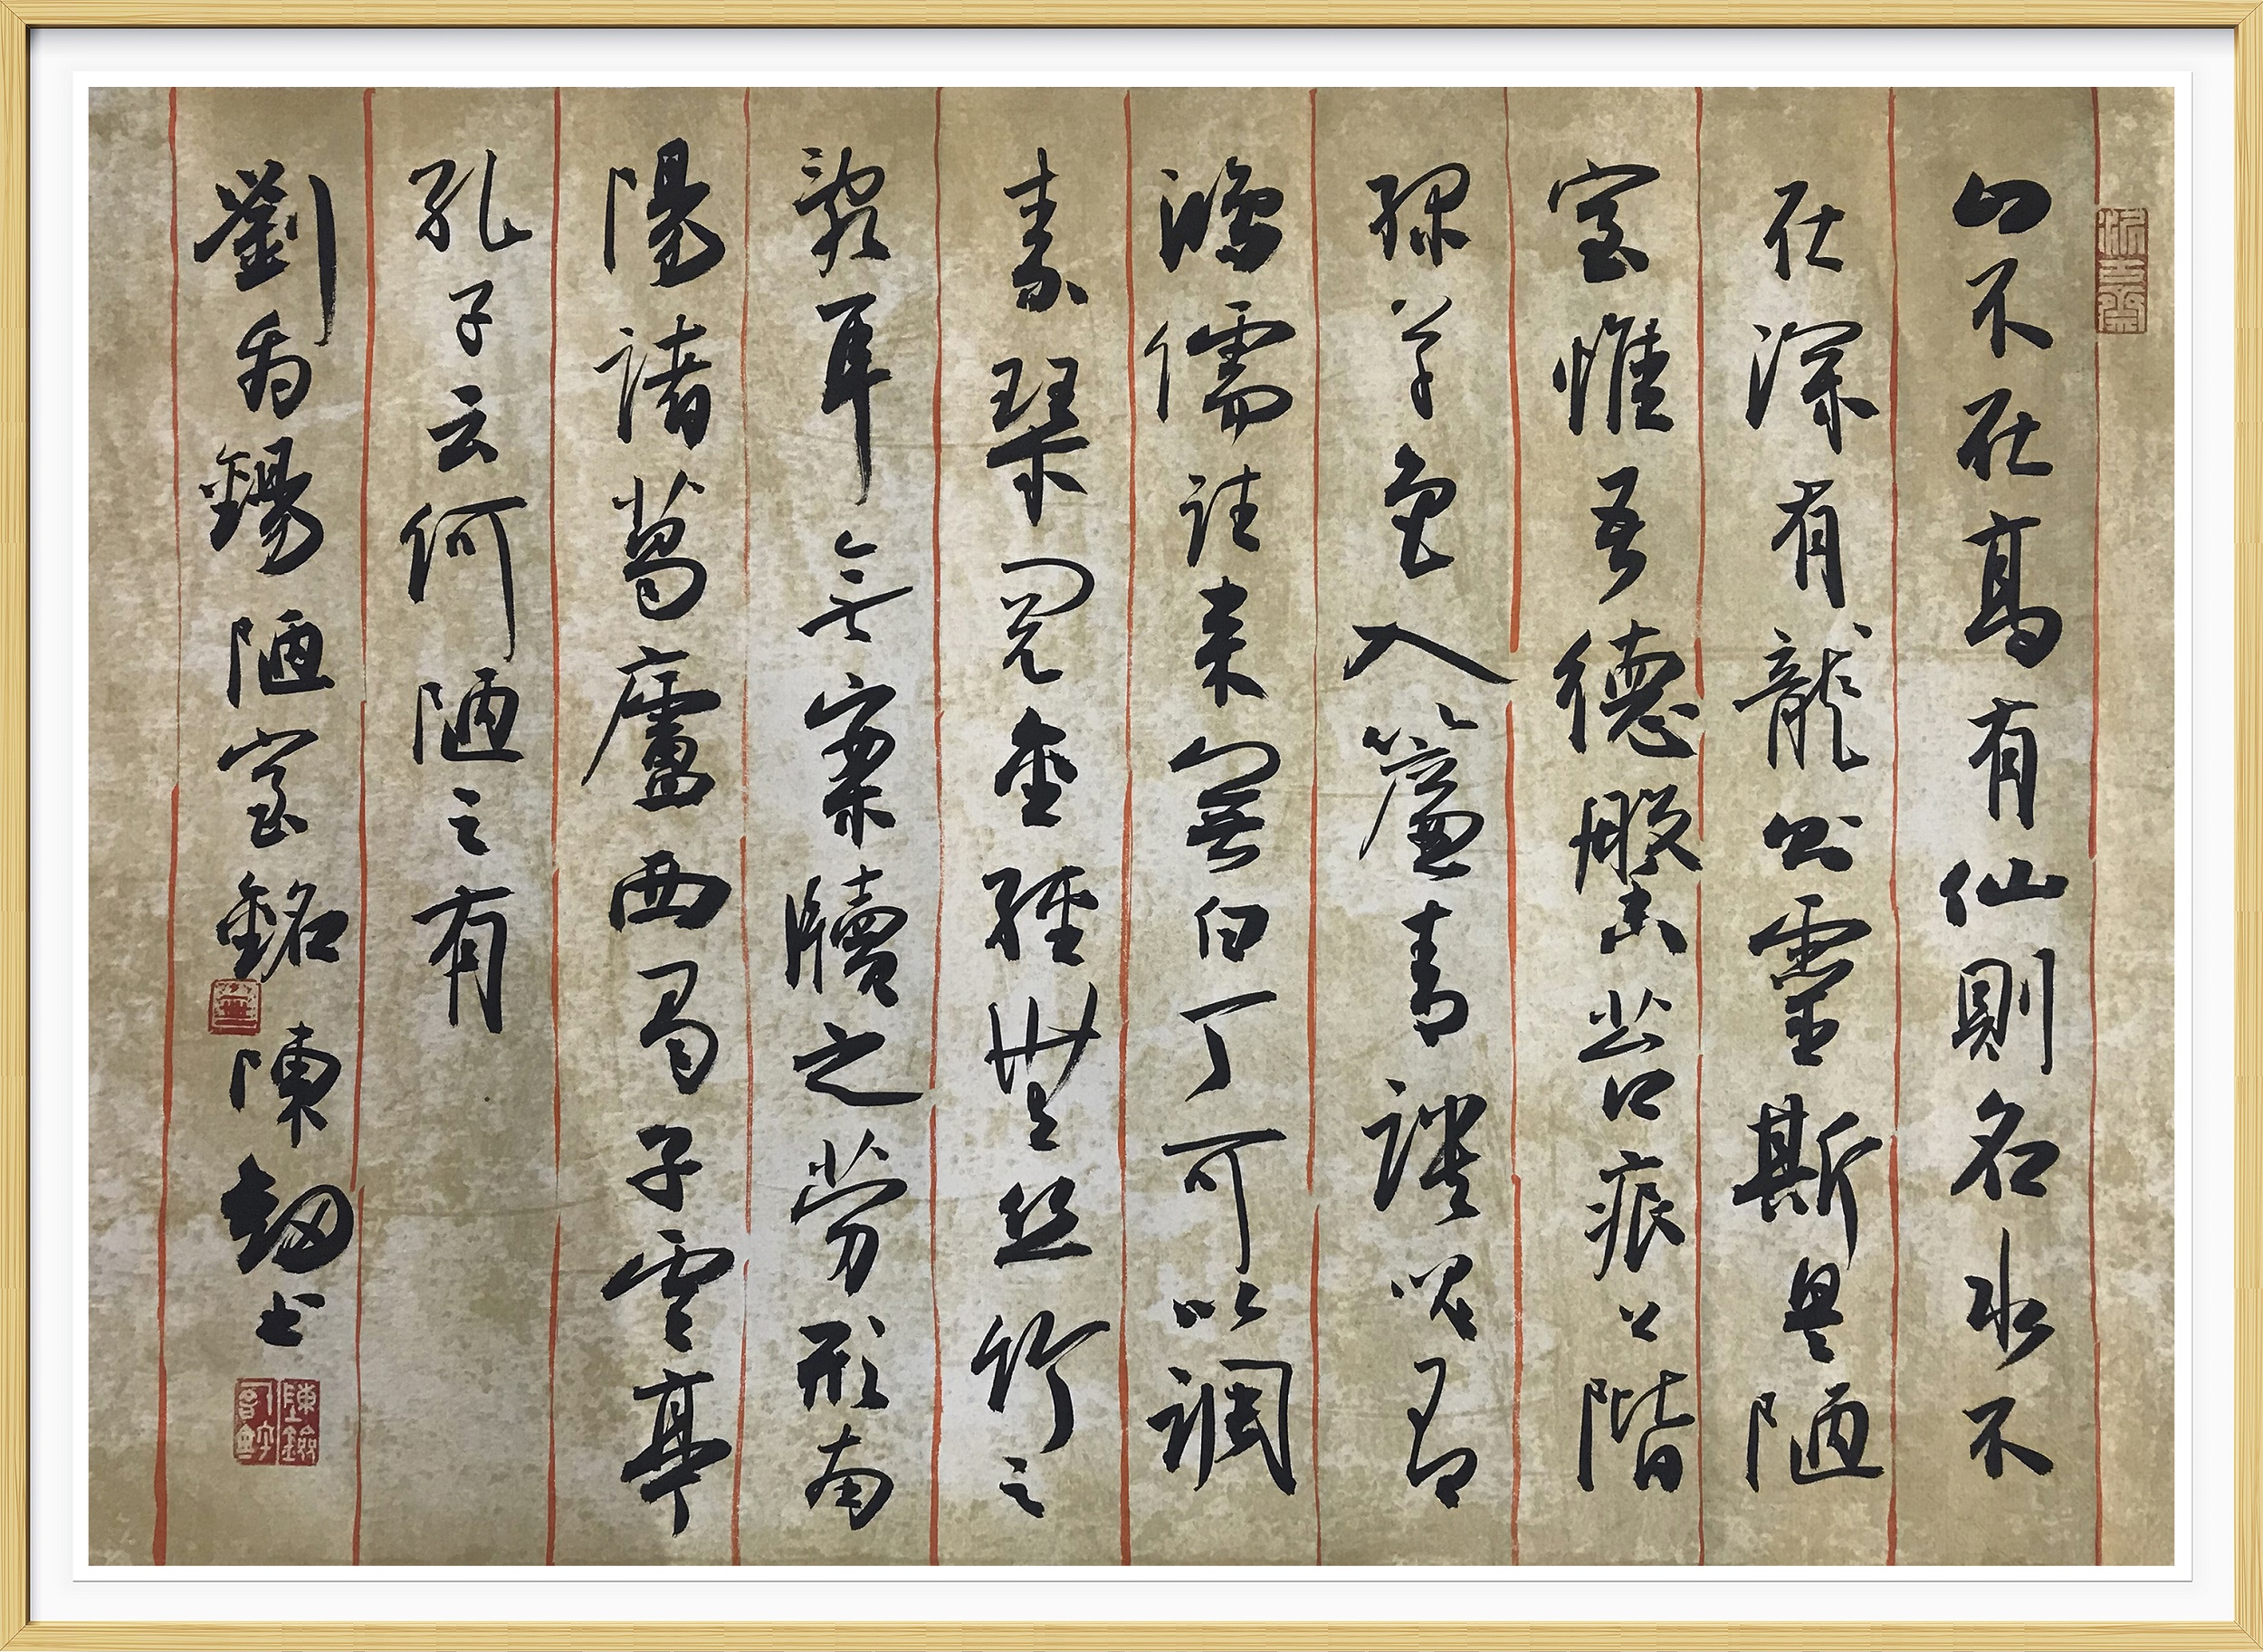 山不在高有仙則名水不
在深有龍則靈斯是陋
室惟吾德馨苔痕上階
緑草色入簾青談笑有
鴻儒往来無白丁可以調
素琴閲金經無絲竹之
亂耳無案牘之勞形南
陽諸葛廬西蜀子雲亭
孔子云何陋之有
劉禹錫陋室銘 陳書